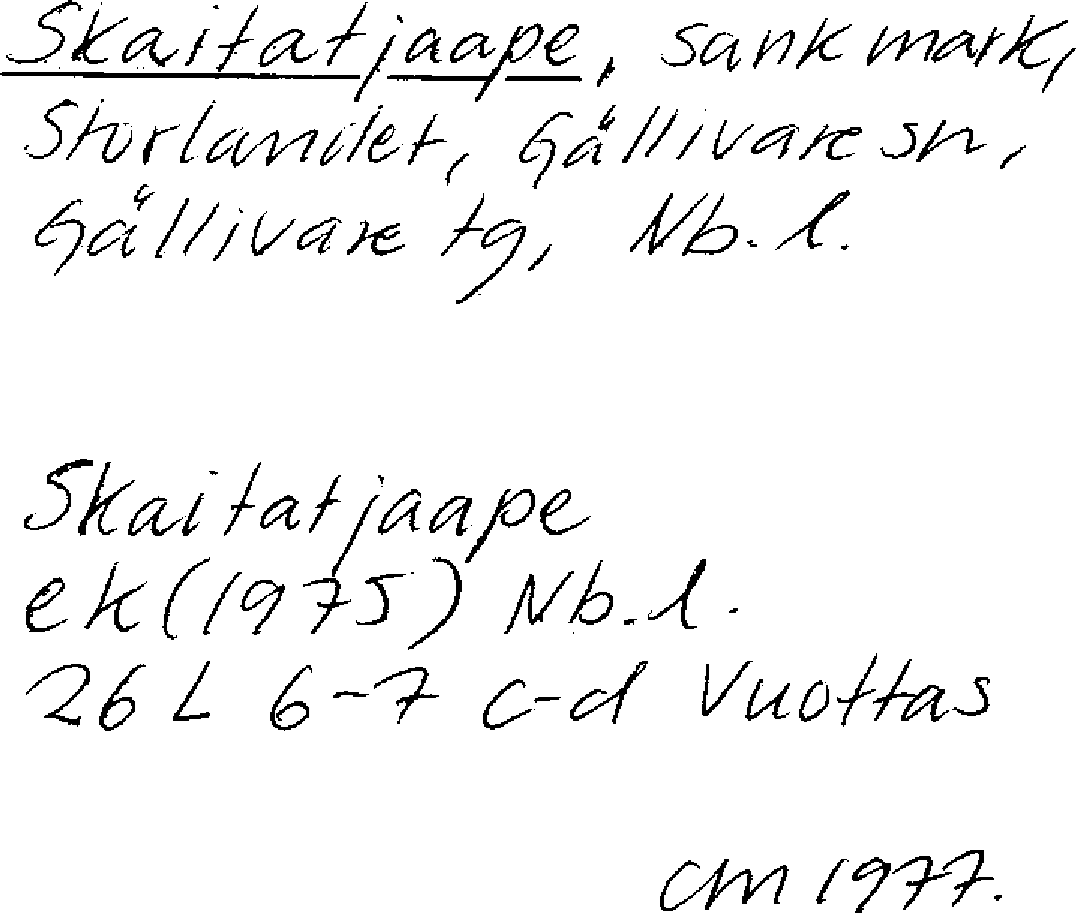 Skaitatjaape, sank mark,
Storlandet, Gällivare sn,
Gällivare tg, Nb.l.
Skaitatjaape
ek (1975) Nb.l.
26 L 6-7 c-d Vuottas
CM 1977.